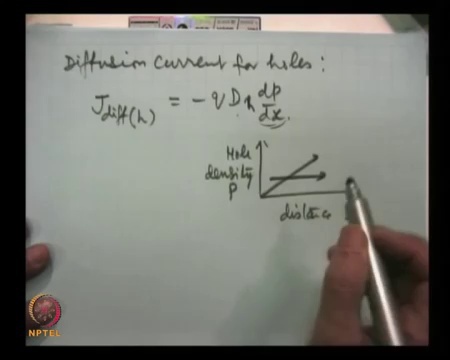 Diffusion current for holes :
J diff(h) = - q D h dp/dx
Hole
density
P
distance
NPTEL